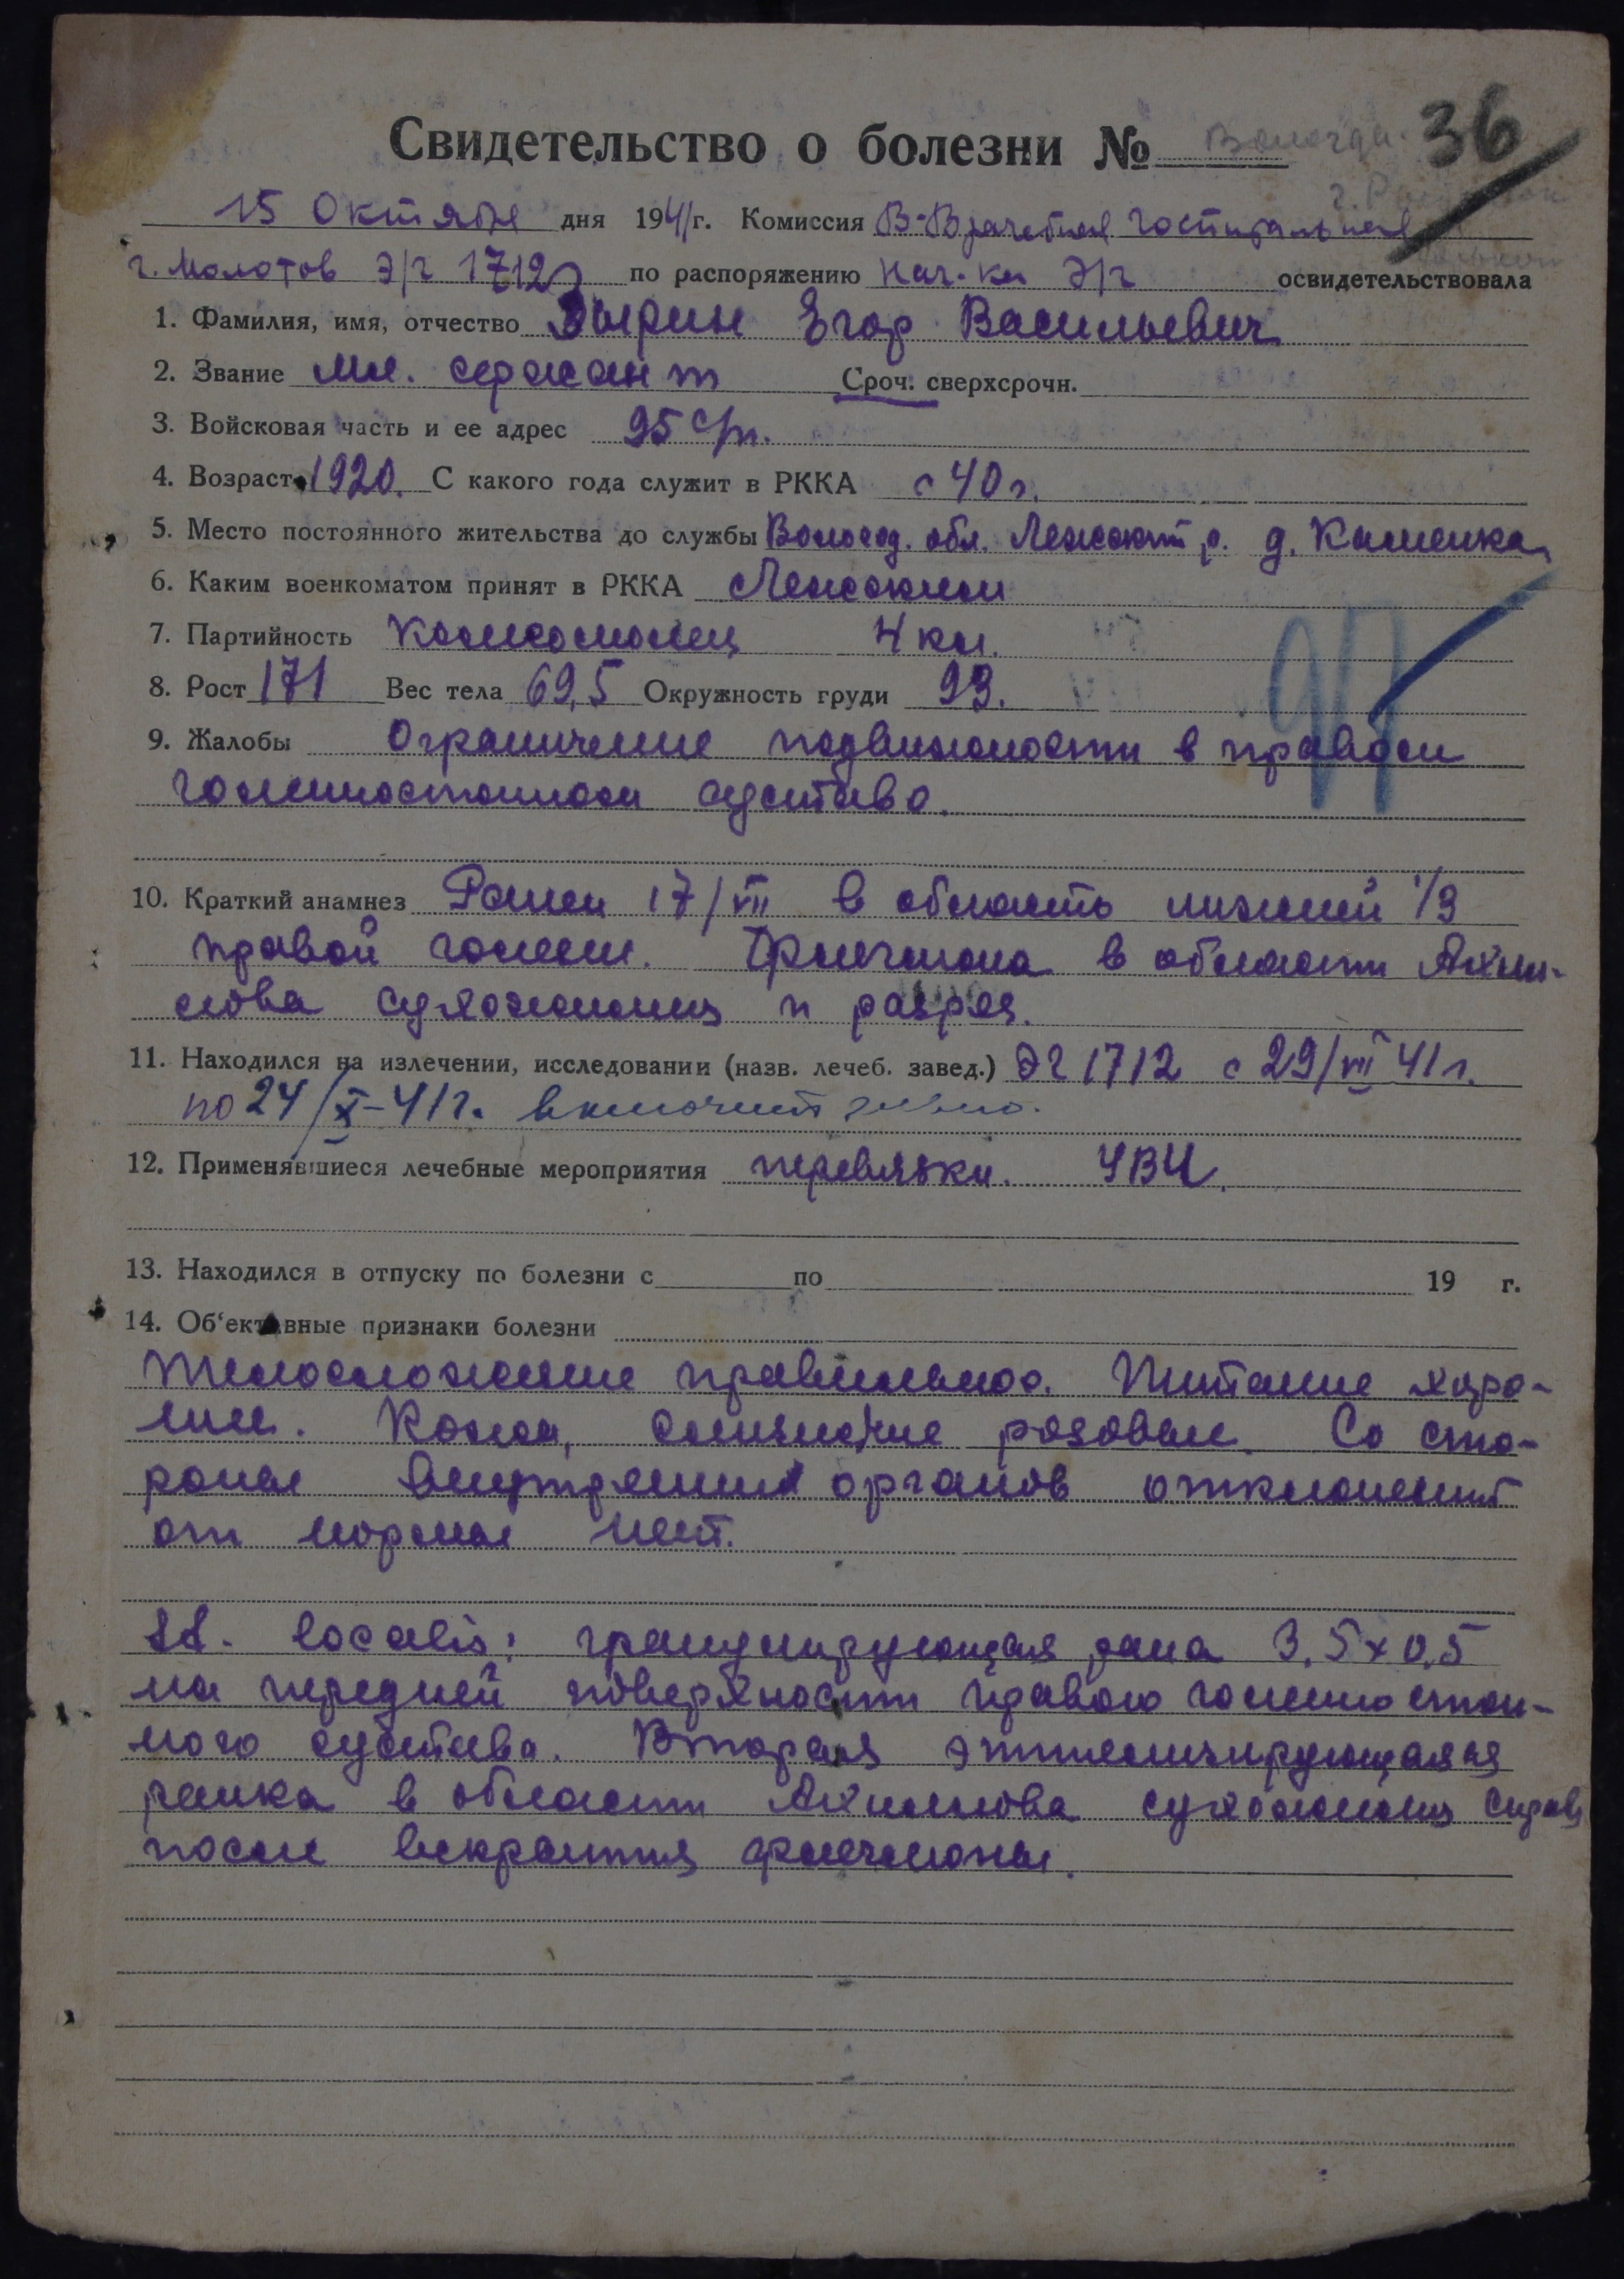 Вологда. 36
Свидетельство о болезни №
15 Октября дня 1941 г. Комиссия В-Врачебная госпитальная
г. Молотов Э/г 1712 по распоряжению нач-ка Э/г освидетельствовала
1. Фамилия, имя, отчество Зырин Егор Васильевич
2. Звание мл. сержант Сроч. сверхсрочн.
3. Войсковая часть и ее адрес 95 с/п.
4. Возраст 1920. С какого года служит в РККА с 40 г.
5. Место постоянного жительства до службы Вологод. обл. р. д. Каменка
6. Каким военкоматом принят в РККА
7. Партийность Комсомолец 4 кл.
8. Рост 171 Вес тела 69,5 Окружность груди 93.
9. Жалобы Ограничение подвижности в правом
голеностопном суставе.
10. Краткий анамнез Ранен 17/VII в область нижней 1/3
правой голени. Флегмона в области Ахил-
лова сухожилия и разрез.
11. Находился на излечении, исследовании (назв. лечеб. завед.) ЭГ 1712 с 29/VII 41 г.
по 24/X-41г. включительно.
12. Применявшиеся лечебные мероприятия перевязки. УВЧ.
13. Находился в отпуску по болезни с по 19 г.
14. Об'ективные признаки болезни
Телосложение правильное. Питание хоро-
шее. Кожа, слизистые розовые. Со сто-
роны внутренних органов отклонений
от нормы нет.
St. localis: гранулирующая рана 3,5x0,5
на передней поверхности правого голеностоп-
ного сустава. Вторая эпителизирующаяся
ранка в области Ахиллова сухожилия справа
после вскрытия флегмоны.